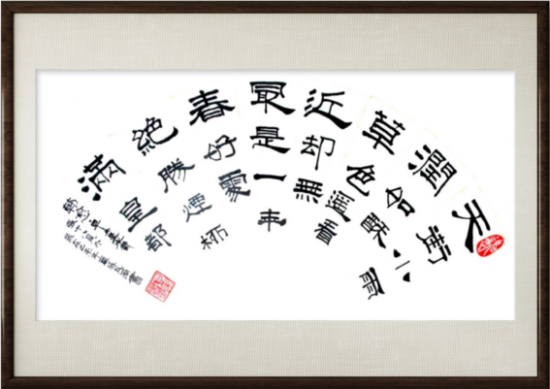 天街小雨
潤如酥
草色遥看
近却無
最是一年
春好處
絕勝煙柳
滿皇都